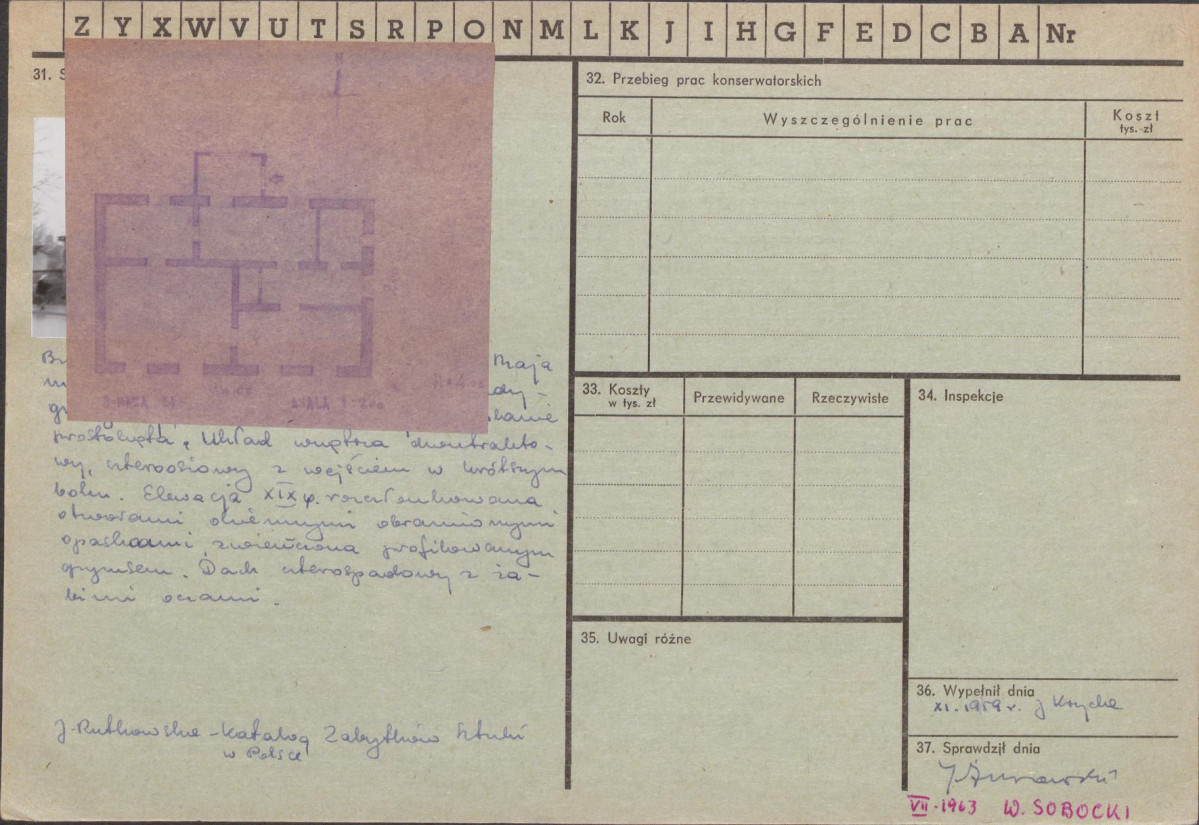 Z Y X W V U T S R P O N M L K J I H G F E D C B A Nr
31. S
N
SKALA 1:200
Maja
prostokątna. Układ wnętrza dwutrakto-
wy, czteroosiowy z wejściem w krótszym
boku. Elewacja XIX w. rozczłonkowana
otworami okiennymi obramionymi
opaskami, zwieńczona profilowanym
gzymsem. Dach czterospadowy z ża-
bimi oczami.
J. Rutkowska - Katalog Zabytków Sztuki
w Polsce
32. Przebieg prac konserwatorskich
Rok Wyszczególnienie prac Koszt
tys. zł
33. Koszty
w tys. zł
Przewidywane Rzeczywiste
34. Inspekcje
35. Uwagi różne
36. Wypełnił dnia
XI. 1959 r. J Krych
37. Sprawdził dnia
J Żurawski
VII-1963 W. SOBOCKI